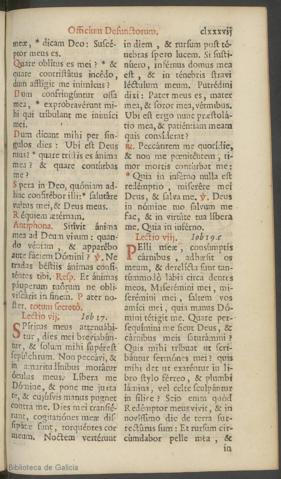 Officium Defunctorum.
clxxxvij
meæ, * dicam Deo: Suscé-
ptor meus es.
Quare oblitus es mei? * &
quare contristátus incédo,
dum affligit me inimicus?
Dum confringúntur ossa
mea, * exprobavérunt mi-
hi qui tribulant me inimici
mei.
Dum dicunt mihi per sin-
gulos dies: Ubi est Deus
tuus? * quare tristis es ánima
mea? & quare contúrbas
me?
Spera in Deo, quóniam ad-
huc confitébor illi: * salutáre
vultus mei, & Deus meus.
Réquiem ætérnam.
Antiphona. Sitivit ánima
mea ad Deum vivum: quan-
do véniam, & apparébo
ante fáciem Dómini? ℣. Ne
tradas béstiis ánimas confi-
téntes tibi. Resp. Et ánimas
páuperum tuórum ne obli-
viscáris in finem. Pater no-
ster. totum secretò.
Lectio vij. Iob 17.
Spíritus meus attenuábi-
tur, dies mei breviabún-
tur, & solum mihi súperest
sepulchrum. Non peccávi, &
in amaritudínibus morátur
óculus meus. Líbera me
Dómine, & pone me juxta
te, & cujúsvis manus pugnet
contra me. Dies mei transié-
runt, cogitatiónes meæ dis-
sipátæ sunt, torquéntes cor
meum. Noctem vertérunt
in diem, & rursum post té-
nebras spero lucem. Si susti-
núero, inférnus domus mea
est, & in ténebris stravi
léctulum meum. Putrédini
dixi: Pater meus es, mater
mea, & soror mea, vérmibus.
Ubi est ergo nunc præstolá-
tio mea, & patiéntiam meam
quis consíderat?
℟. Peccántem me quotídie,
& non me pœniténtem, ti-
mor mortis contúrbat me:
* Quia in inférno nulla est
redémptio, miserére mei
Deus, & salva me. ℣. Deus
in nómine tuo salvum me
fac, & in virtúte tua líbera
me. Quia in inférno.
Lectio viij. Iob 19. c
Pelli meæ, consúmptis
cárnibus, adhæsit os
meum, & derelícta sunt tan-
tummodò lábia circa dentes
meos. Miserémini mei, mi-
serémini mei, saltem vos
amíci mei, quia manus Dó-
mini tétigit me. Quare per-
sequímini me sicut Deus, &
cárnibus meis saturámini?
Quis mihi tríbuat ut scri-
bántur sermónes mei? quis
mihi det ut exaréntur in li-
bro stylo férreo, & plumbi
lámina, vel celte sculpántur
in sílice? Scio enim quòd
Redémptor meus vivit, & in
novíssimo die de terra sur-
rectúrus sum: Et rursum cir-
cúmdabor pelle mea, &
in
Biblioteca de Galicia